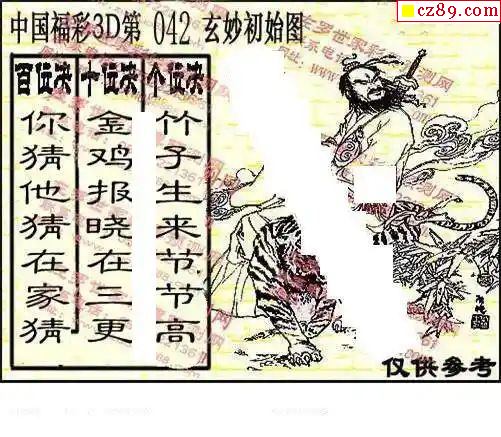 cz89.com
中国福彩3D第 042 玄妙初始图
百位决
你猜他猜在家猜
十位决
金鸡报晓在三更
个位决
竹子生来节节高
仅供参考